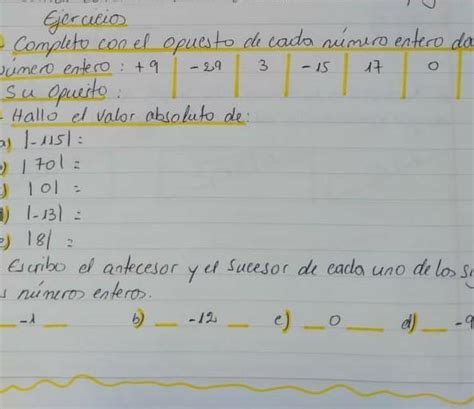 Ejercicios
Completo con el opuesto de cada número entero da
número entero : +9 | -29 | 3 | -15 | 17 | 0
Su opuesto :
- Hallo el valor absoluto de:
a) |-115| =
) |70| =
) |0| =
d) |-13| =
e) |8| =
Escribo el antecesor y el sucesor de cada uno de los si
s números enteros.
__ -1 __ b) __ -12 __ c) __ 0 __ d) __ -9